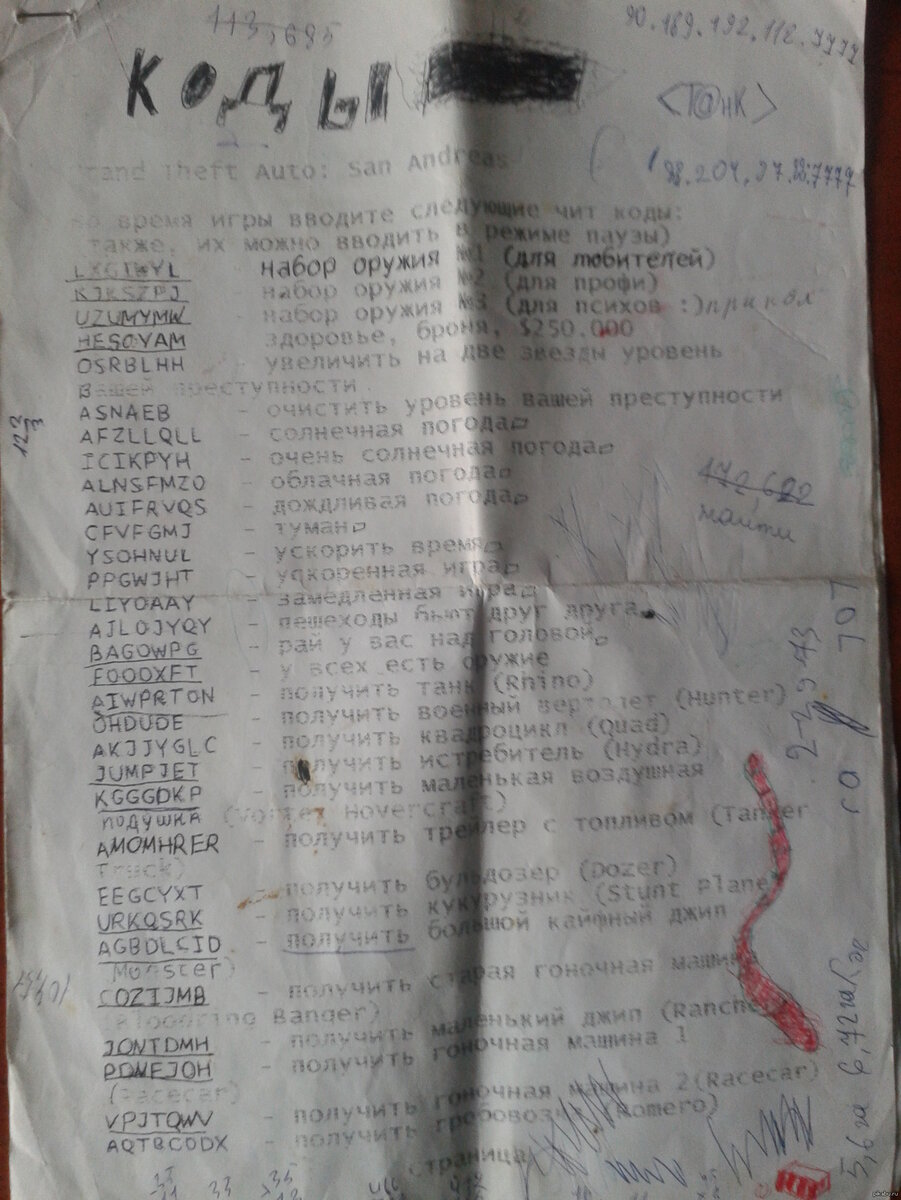 113,685
90.189.192.112.7777
КОДЫ
<Т@нК>
Grand Theft Auto: San Andreas
98.204.37.98:7777
Во время игры вводите следующие чит коды:
также, их можно вводить в режиме паузы)
LXGIWYL - набор оружия №1 (для любителей)
KJKSZPJ - набор оружия №2 (для профи)
UZUMYMW - набор оружия №3 (для психов :) прикол
HESOYAM - здоровье, броня, $250.000
OSRBLHH - увеличить на две звезды уровень
вашей преступности
ASNAEB - очистить уровень вашей преступности
AFZLLQLL - солнечная погода
ICIKPYH - очень солнечная погода
ALNSFMZO - облачная погода
AUIFRVQS - дождливая погода
172,622
CFVFGMJ - туман
найти
YSOHNUL - ускорить время
PPGWJHT - ускоренная игра
LIYOAAY - замедленная игра
AJLOJYQY - пешеходы бьют друг друга
BAGOWPG - рай у вас над головой
FOOOXFT - у всех есть оружие
AIWPRTON - получить танк (Rhino)
OHDUDE - получить военный вертолет (Hunter)
AKJJYGLC - получить квадроцикл (Quad)
JUMPJET - получить истребитель (Hydra)
KGGGDKP - получить маленькая воздушная
подушка (Vortex Hovercraft)
AMOMHRER - получить трейлер с топливом (Tanker
Truck)
EEGCYXT - получить бульдозер (Dozer)
URKQSRK - получить кукурузник (Stunt Plane)
AGBDLCID - получить большой кайфный джип
Monster)
CQZIJMB - получить старая гоночная машина
(Bloodring Banger)
JQNTDMH - получить маленький джип (Rancher)
PDNEJOH - получить гоночная машина 1
(Racecar)
VPJTQWV - получить гоночная машина 2(Racecar)
AQTBCODX - получить гробовоз (Romero)
страница
33
pikabu.ru